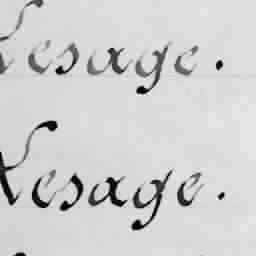 Lesage.
Lesage.